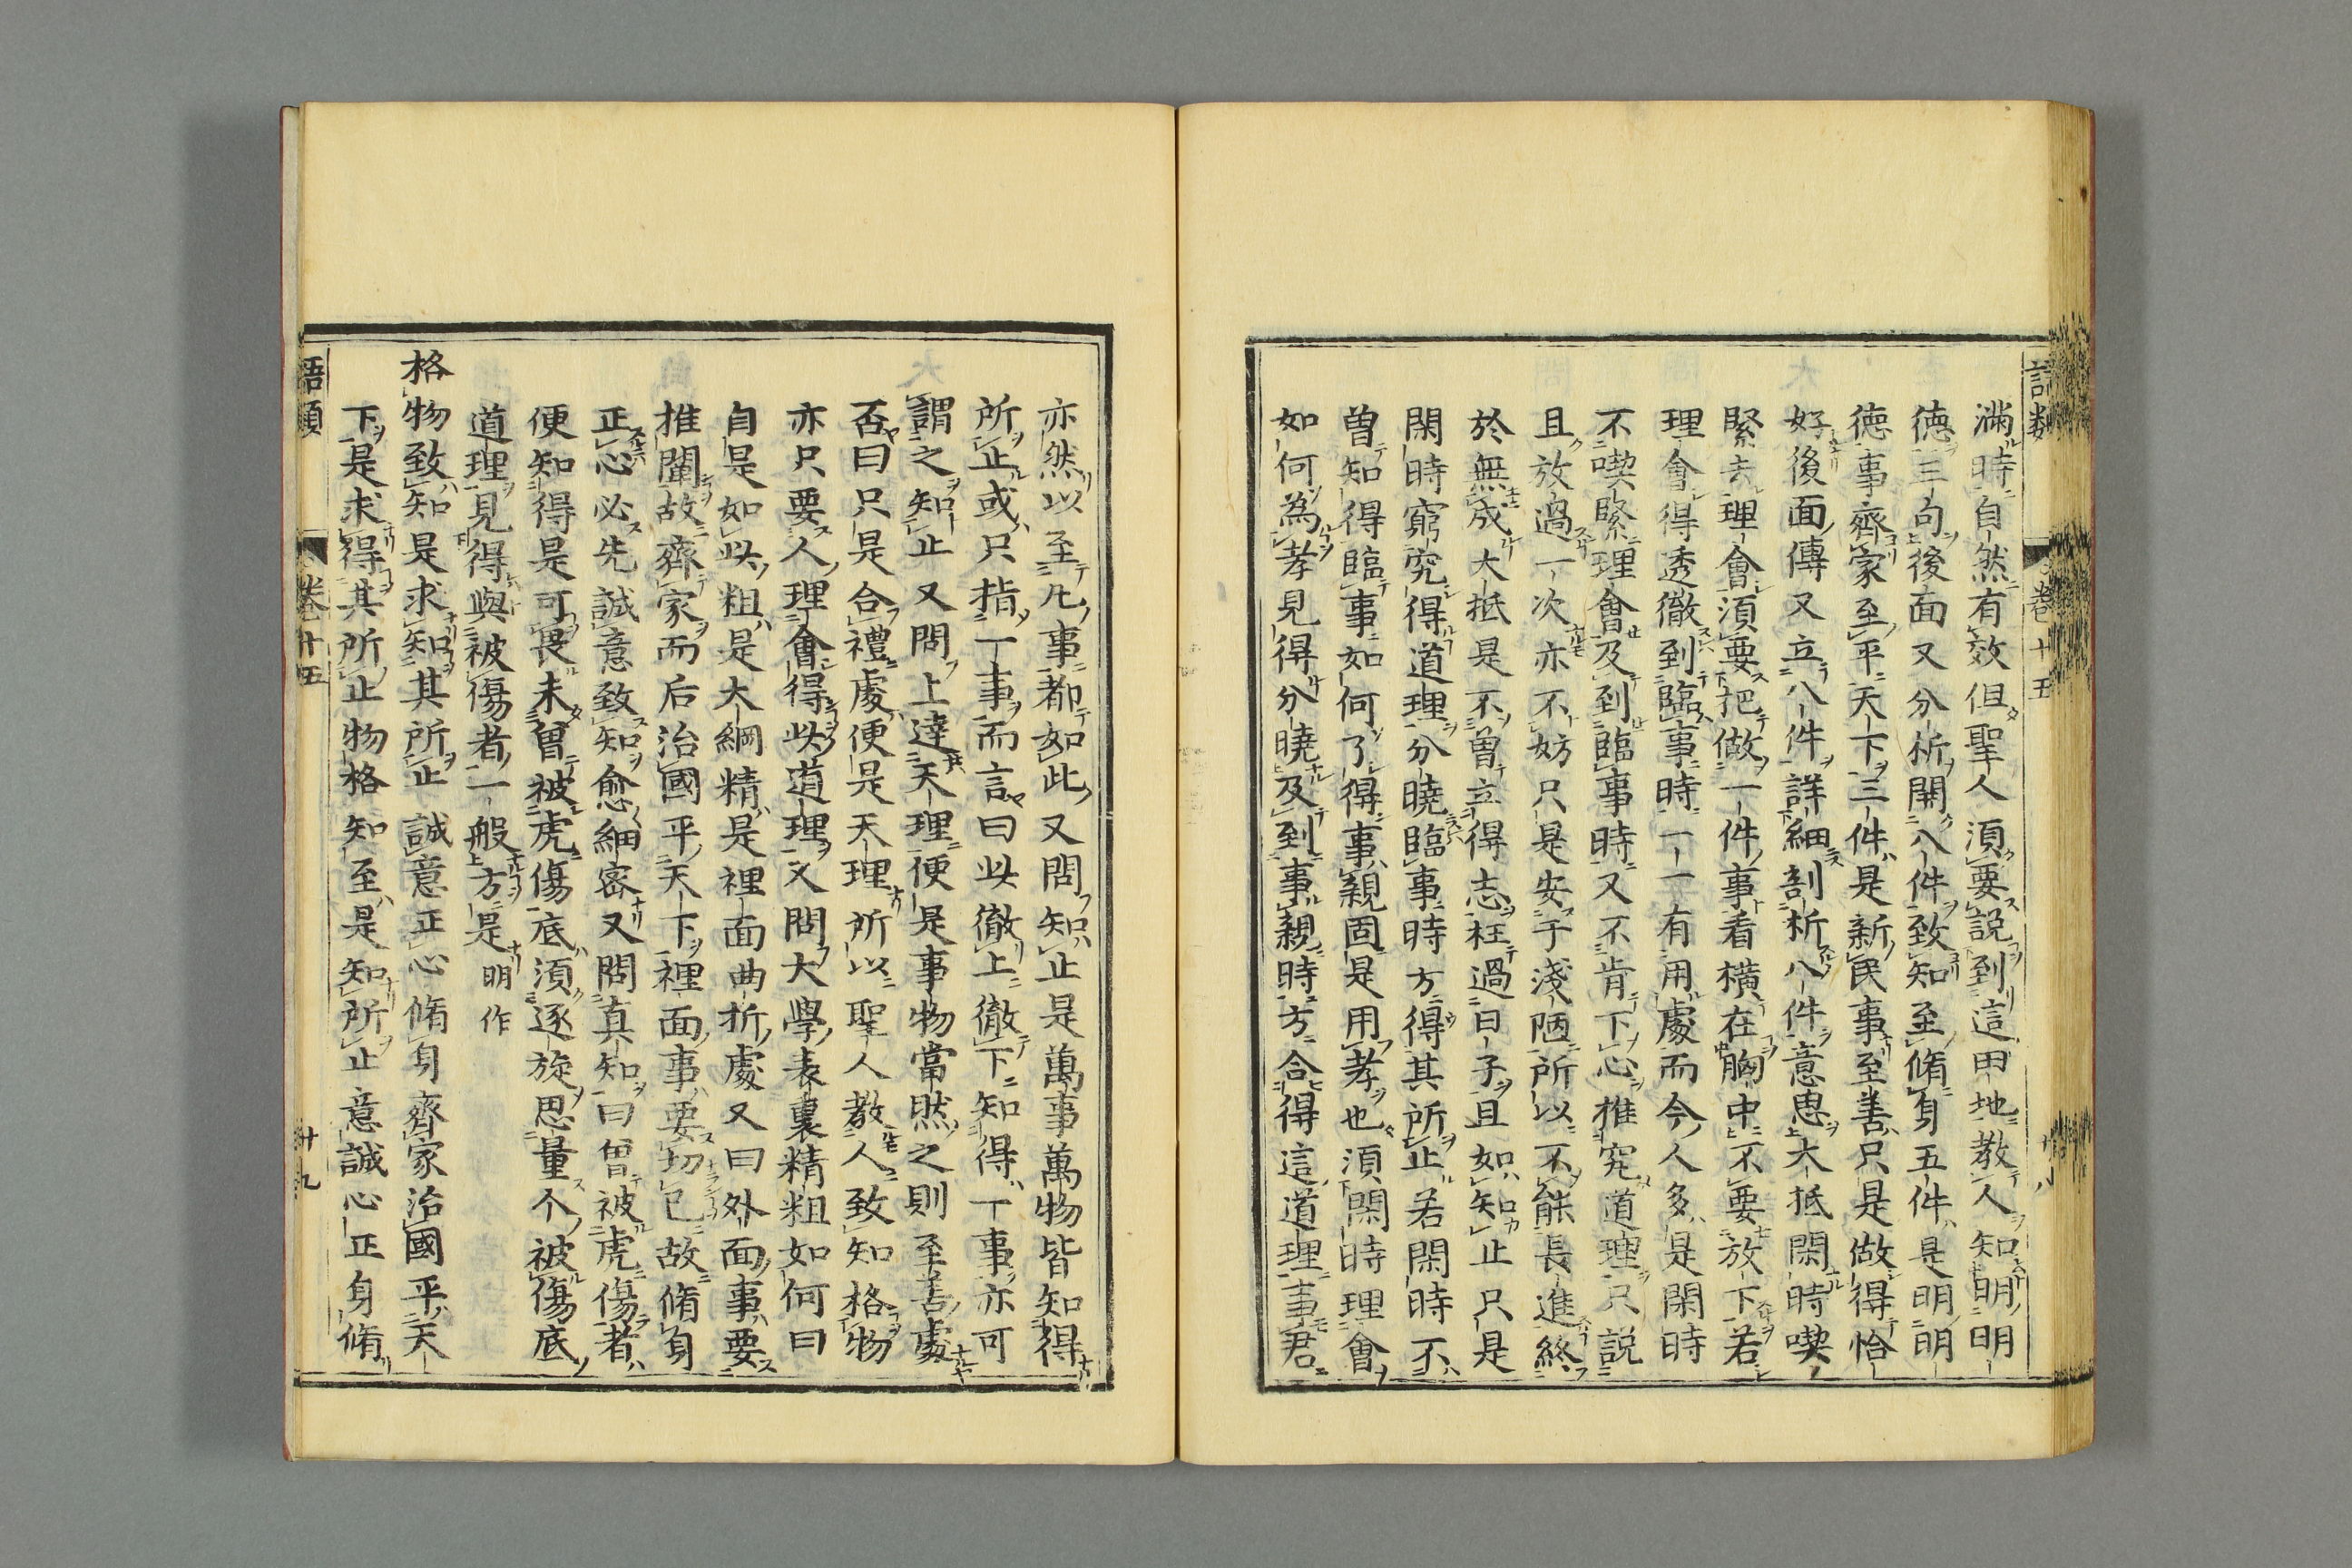 滿時自然有效但聖人須要說到這田地教人知明明
德三句後面又分析開八件致知至脩身五件是明明
德事齊家至平天下三件是新民事至善只是做得恰
好後面傳又立八件詳細剖析八件意思大抵閑時喫
緊去理會須要把做一件事看橫在胸中不要放下若
理會得透徹到臨事時一一有用處而今人多是閑時
不喫緊理會及到臨事時又不肯下心推究道理只說
且放過一次亦不妨只是安于淺陋所以不能長進終
於無成大抵是不曾立得志枉過日子且如知止只是
閑時窮究得道理分曉臨事時方得其所止若閑時不
曾知得臨事如何了得事親固是用孝也須閑時理會
如何為孝見得分曉及到事親時方合得這道理事君
亦然以至凡事都如此又問知止是萬事萬物皆知得
所止或只指一事而言曰此徹上徹下知得一事亦可
謂之知止又問上達天理便是事物當然之則至善處
否曰只是合禮處便是天理所以聖人教人致知格物
亦只要人理會得此道理又問大學表裏精粗如何曰
自是如此粗是大綱精是裡面曲折處又曰外面事要
推闡故齊家而后治國平天下裡面事要切己故脩身
正心必先誠意致知愈細密又問真知曰曾被虎傷者
便知得是可畏未曾被虎傷底須逐旋思量个被傷底
道理見得與被傷者一般方是 明作
格物致知是求知其所止誠意正心脩身齊家治國平天
下是求得其所止物格知至是知所止意誠心正身脩
語類 卷十五 十八
語類 卷十五 十九